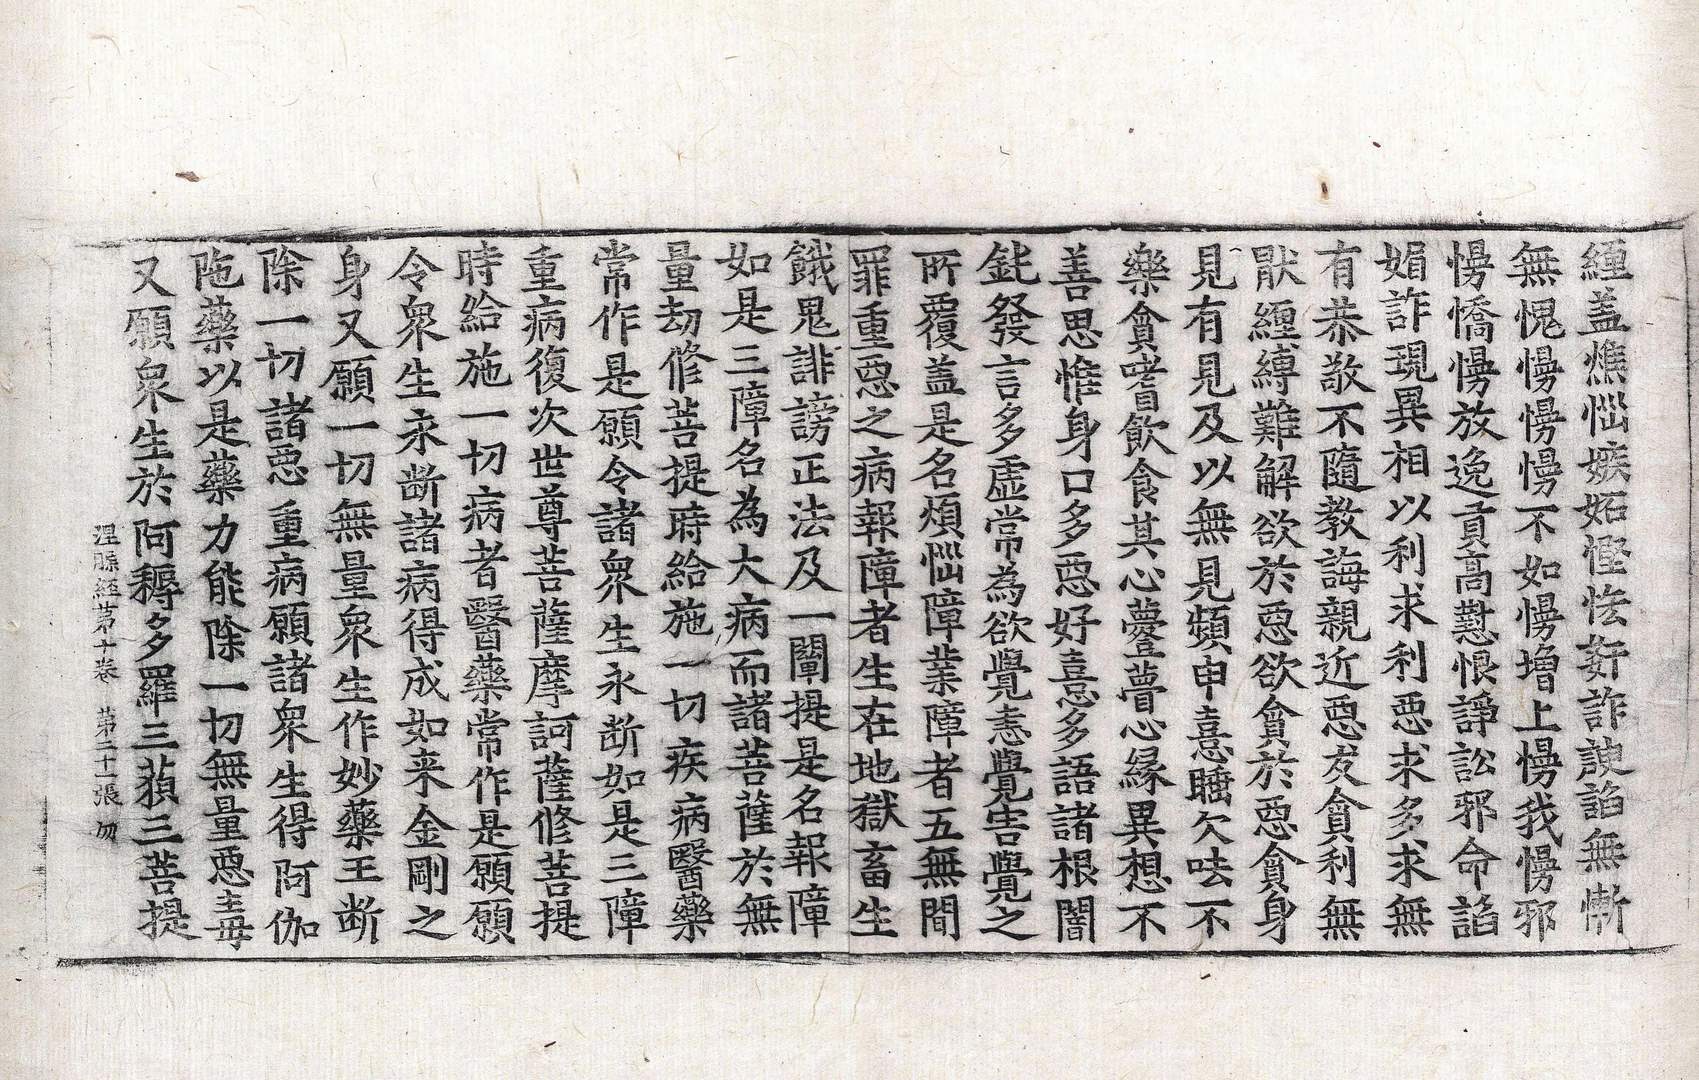 纏盖燋惱嫉妬慳悋姧詐諛謟無慚
無愧慢慢慢不如慢增上慢我慢邪
慢憍慢放逸貢高懟恨諍訟邪命謟
媚詐現異相以利求利惡求多求無
有恭敬不隨教誨親近惡友貪利無
猒纏縛難解欲於惡欲貪於惡貪身
見有見及以無見頻申憙睡欠呿不
樂貪嗜飲食其心瞢瞢心緣異想不
善思惟身口多惡好憙多語諸根闇
鈍發言多虛常為欲覺恚覺害覺之
所覆盖是名煩惱障業障者五無間
罪重惡之病報障者生在地獄畜生
餓鬼誹謗正法及一闡提是名報障
如是三障名為大病而諸菩薩於無
量劫修菩提時給施一切疾病醫藥
常作是願令諸衆生永断如是三障
重病復次世尊菩薩摩訶薩修菩提
時給施一切病者醫藥常作是願願
令衆生永断諸病得成如来金剛之
身又願一切無量衆生作妙藥王断
除一切諸惡重病願諸衆生得阿伽
陁藥以是藥力能除一切無量惡毒
又願衆生於阿耨多羅三藐三菩提
涅槃經第十卷 第二十一張 勿